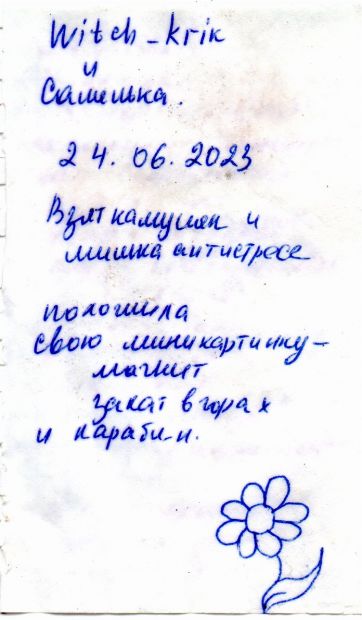 Witch_krik
и
Самелька.
24.06.2023
Взят камушек и
мишка антистресс
положила
свою миникартинку-
магнит
закат в горах
и карабин.